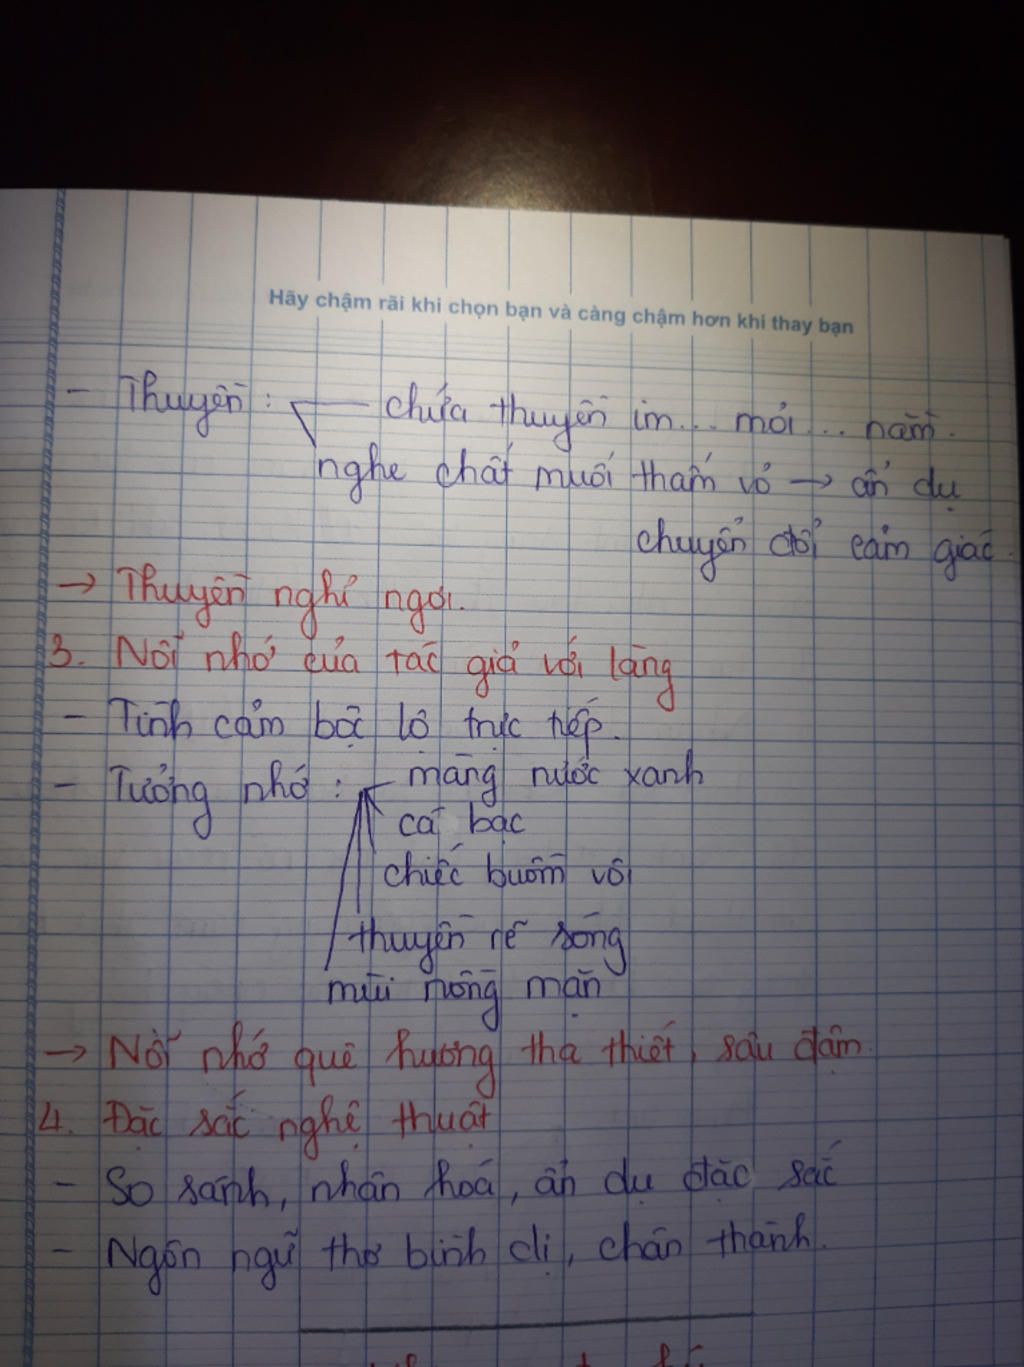 Hãy chậm rãi khi chọn bạn và càng chậm hơn khi thay bạn
- Thuyền : chứa thuyền im... mỏi... nằm.
nghe chất muối thấm vỏ → ẩn dụ
chuyển đổi cảm giác.
→ Thuyền nghỉ ngơi.
3. Nỗi nhớ của tác giả với làng
- Tình cảm bộc lộ trực tiếp.
- Tưởng nhớ : màng nước xanh
cá bạc
chiếc buồm vôi
thuyền rẽ sóng
mùi nồng mặn
→ Nỗi nhớ quê hương tha thiết, sâu đậm.
4. Đặc sắc nghệ thuật
- So sánh, nhân hoá, ẩn dụ đặc sắc
- Ngôn ngữ thơ bình dị, chân thành.